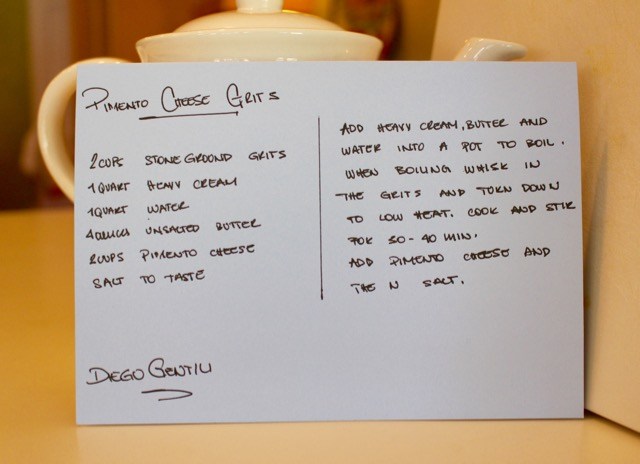 PIMENTO CHEESE GRITS
2 CUPS STONE GROUND GRITS
1 QUART HEAVY CREAM
1 QUART WATER
4 OUNCES UNSALTED BUTTER
2 CUPS PIMENTO CHEESE
SALT TO TASTE
DIEGO GENTILI
ADD HEAVY CREAM, BUTTER AND
WATER INTO A POT TO BOIL.
WHEN BOILING WHISK IN
THE GRITS AND TURN DOWN
TO LOW HEAT. COOK AND STIR
FOR 30-40 MIN.
ADD PIMENTO CHEESE AND
THE N SALT.